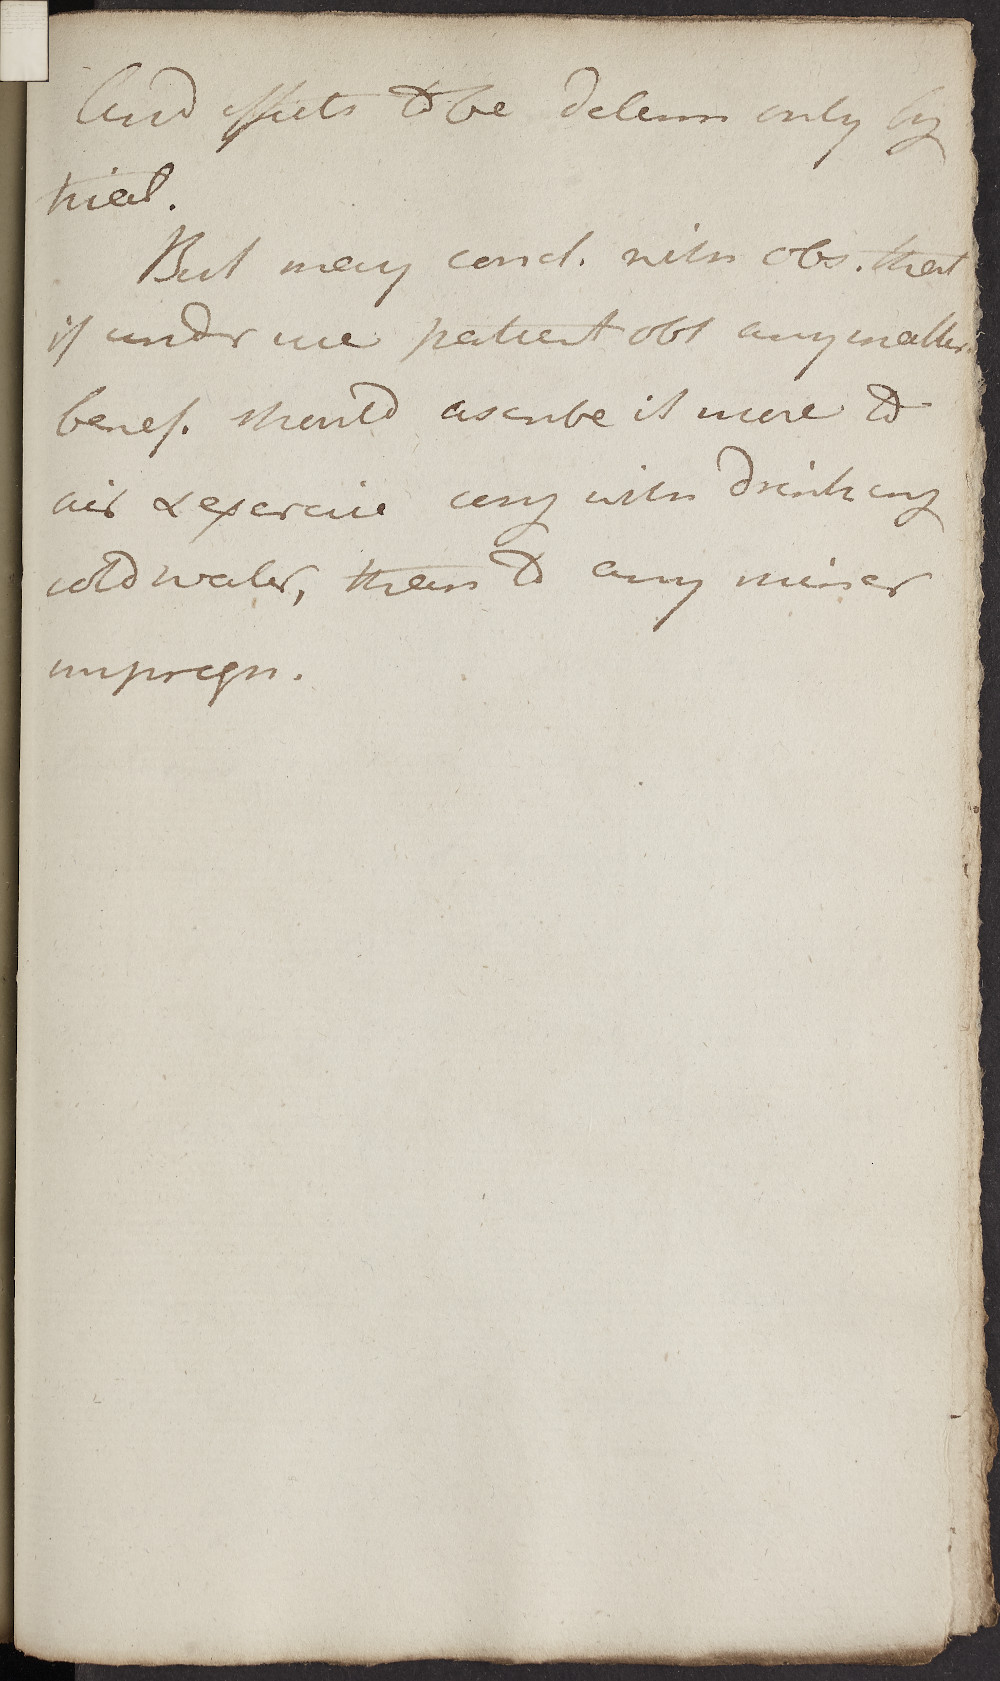 And effects to be determ only by
trial.
But may concl. with obs. that
if under use patient obt any
benef. should ascribe it more to
air & exercise with drinking
cold water, than to any miner
impregn.